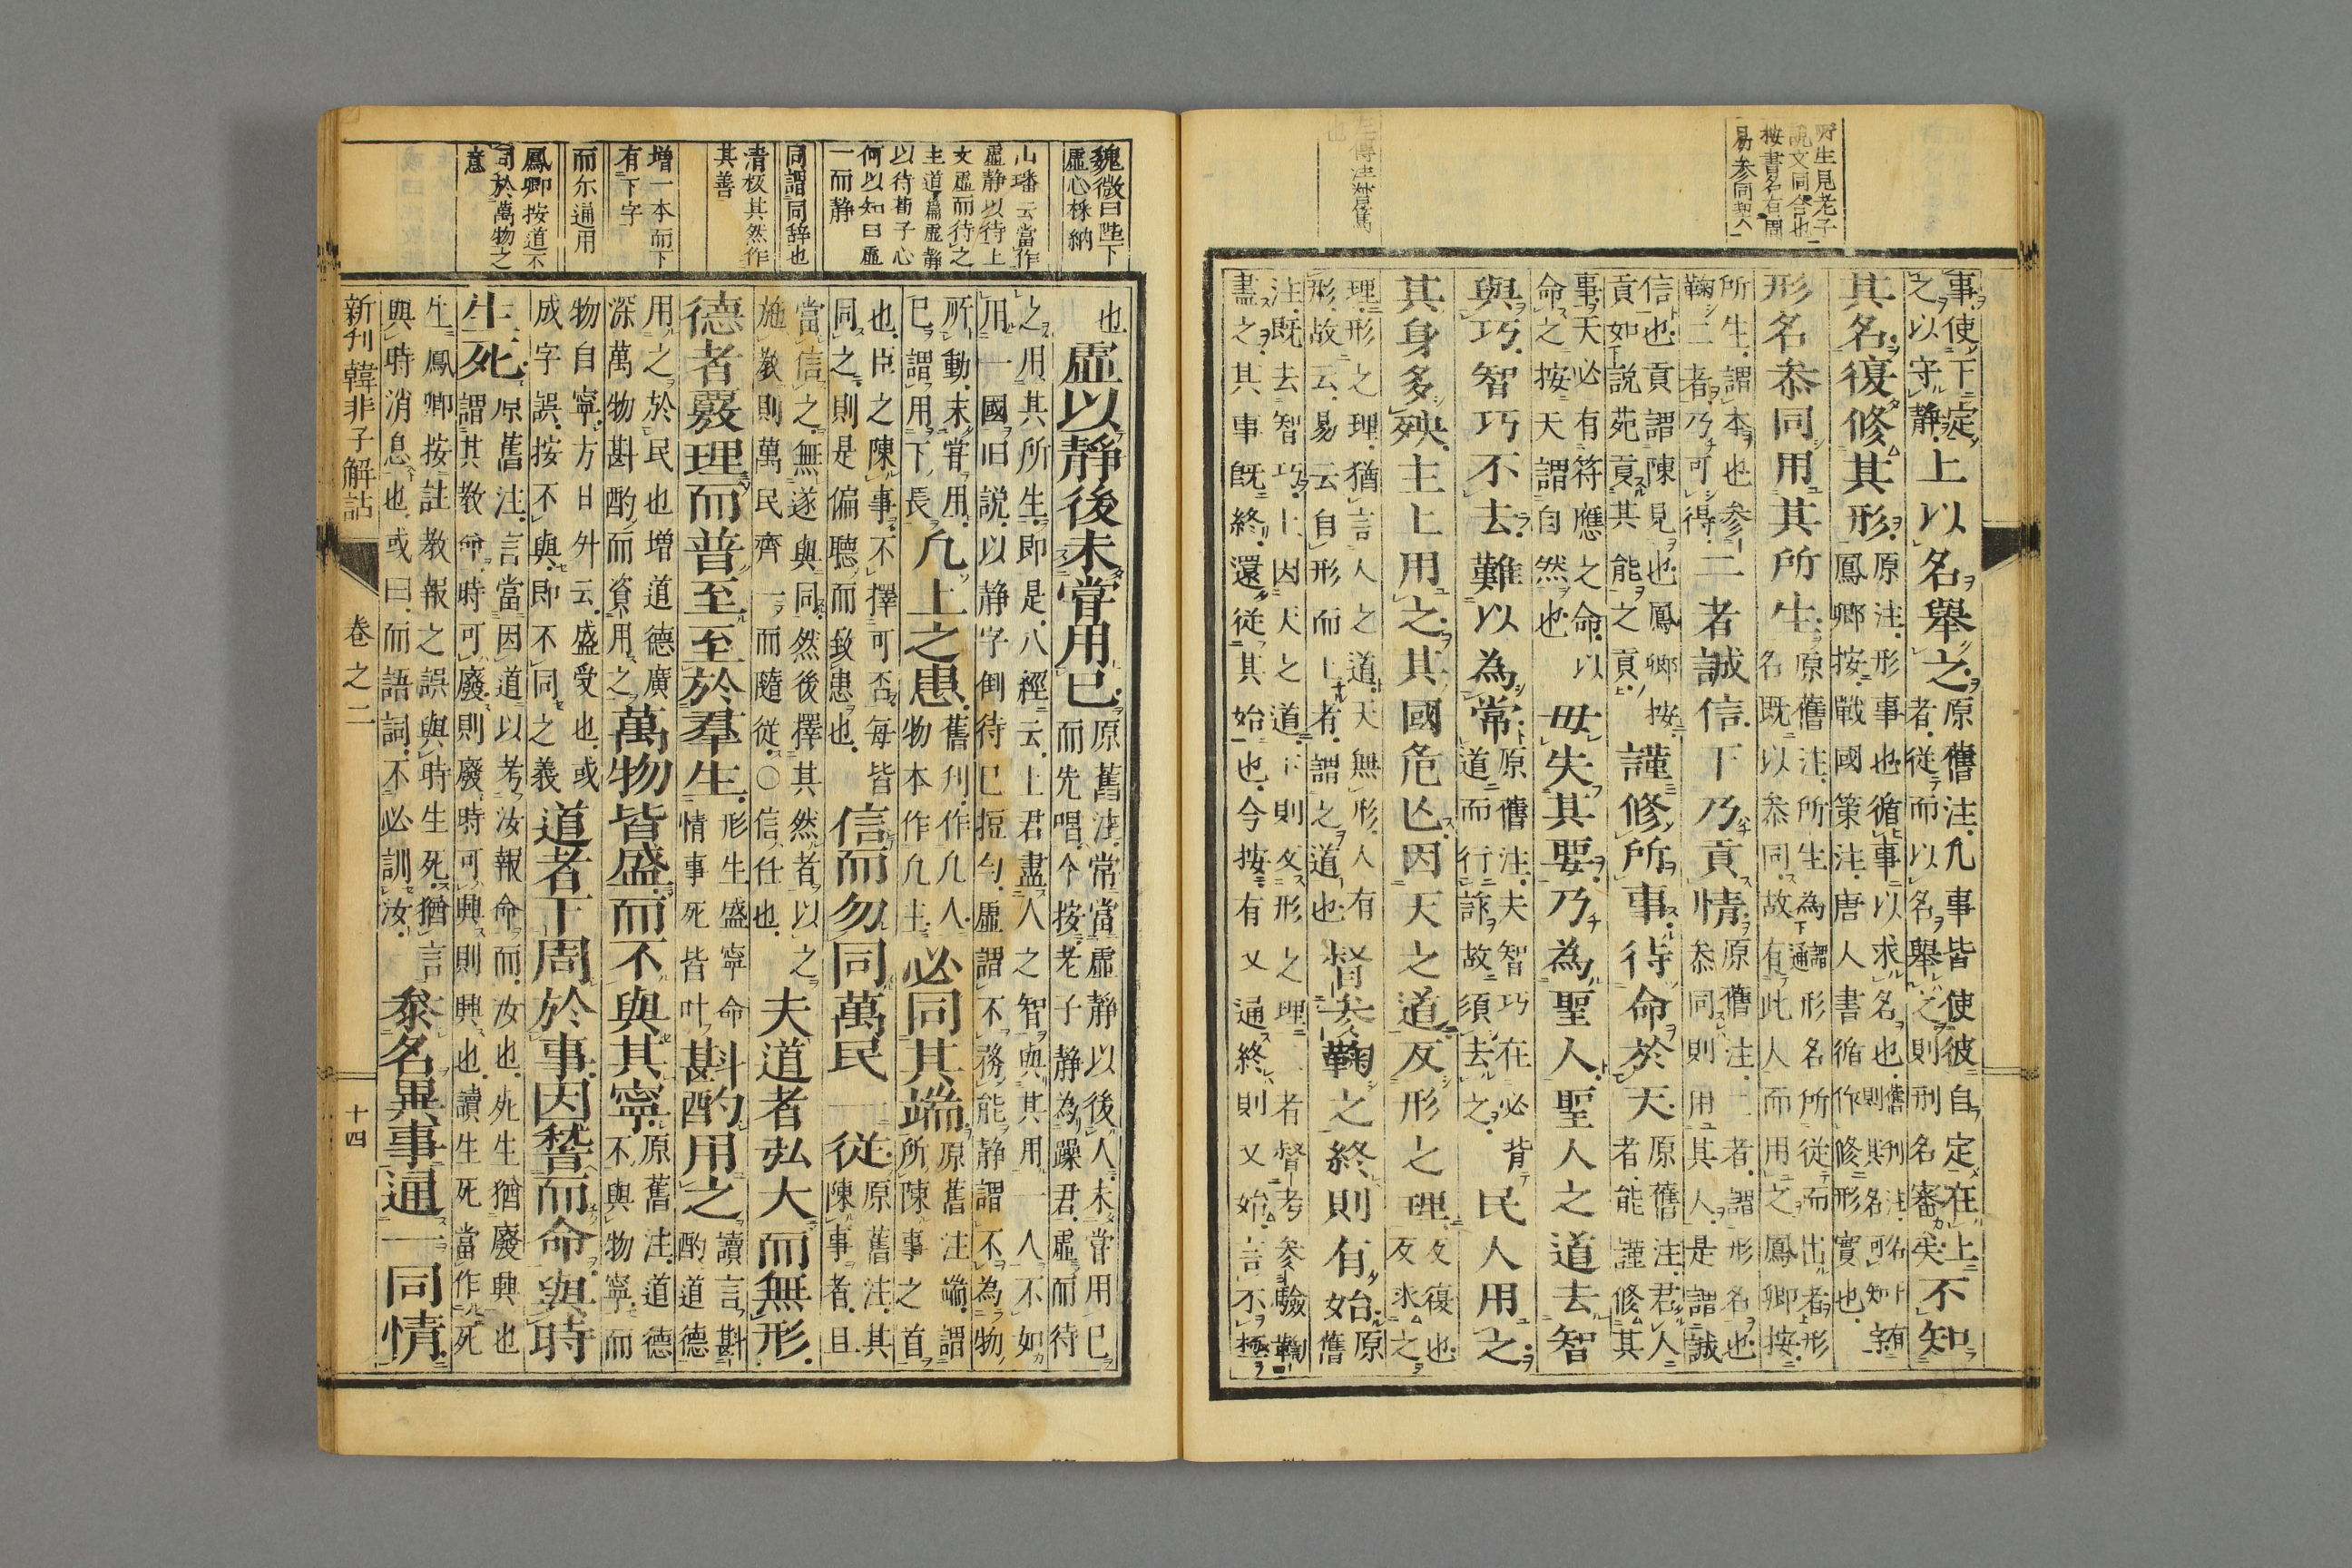 所生見老子
説文同合也
按書名有周
易参同契
事使下定
之以守静
上以名舉之
原舊注凡事皆使彼自定在上
者從而以名舉之則刑名審矣
不知
其名復修其形
原注形事也循事以求名也
舊刊注名下有
則斯名可知字
鳳卿按戰國策注唐人書循作修形實也
形名叅同用其所生
原舊注所生為謂通形名所從而出者形
名既以叅同故有此人而用之鳳卿按
所生謂本也参
鞠二者乃可得
二者誠信下乃貢情
原舊注二者謂形名也
叅同則用其人是謂誠
信也貢謂陳見也鳳卿按
貢如説苑貢其能之貢
謹修所事待命於天
原舊注君人
者能謹修其
事天必有符應之命以
命之按天謂自然也
毋失其要乃為聖人聖人之道去智
與巧智巧不去難以為常
原舊注夫智巧在必背
道而行詐故須去之
民人用之
其身多殃主上用之其國危亾因天之道反形之理
反復也
反求之
理形之理猶言人之道天無形人有
形故云易云自形而上者謂之道也
督参鞠之終則有始
原
舊
注既去智巧上因天之道下則反形之理者督考参驗鞠
盡之其事既終還從其始也今按有又通終則又始言不極
魏徴曰陛下
虚心採納
山璠云當作
虚静以待上
文虚而待之
主道篇虚静
以待荀子心
何以知曰虚
一而静
同謂同辞也
清板其然作
其善
増一本而下
有下字
而尓通用
鳳卿按道不
同於萬物之
意
也
虚以静後未嘗用已
原舊注常當虚静以後人未嘗用已
而先唱今按老子静為躁君虚而待
之用其所生即是八經云上君盡人之智與其用一人不如
用一國旧説以静字倒待已短句虚謂不務能静謂不為物
所動未嘗用
已謂用下長
凡上之患
舊刊作凡人
物本作凡主
必同其端
原舊注端謂
所陳事之首
也臣之陳事不擇可否每皆
同之則是偏聽而致患也
信而勿同萬民一從
原舊注其
陳事者且
當信之無遂與同然後擇其然者以之
施教則萬民齊一而隨從〇信任也
夫道者弘大而無形
德者覈理而普至至於羣生
形生盛寧命
情事死皆叶
斟酌用之
讀言斟
酌道德
用之於民也増道德廣
深萬物斟酌而資用之
萬物皆盛而不與其寧
原舊注道德
不與物寧而
物自寧方日外云盛受也或
成字誤按不與即不同之義
道者下周於事因稽而命與時
生死
原舊注言當因道以考汝報命而汝也死生猶廢興也
謂其教命時可廢則廢時可興則興也讀生死當作死
生鳳卿按註教報之誤與時生死猶言
與時消息也或曰而語詞不必訓汝
叅名異事通一同情
新刊韓非子解詁 卷之二 十四